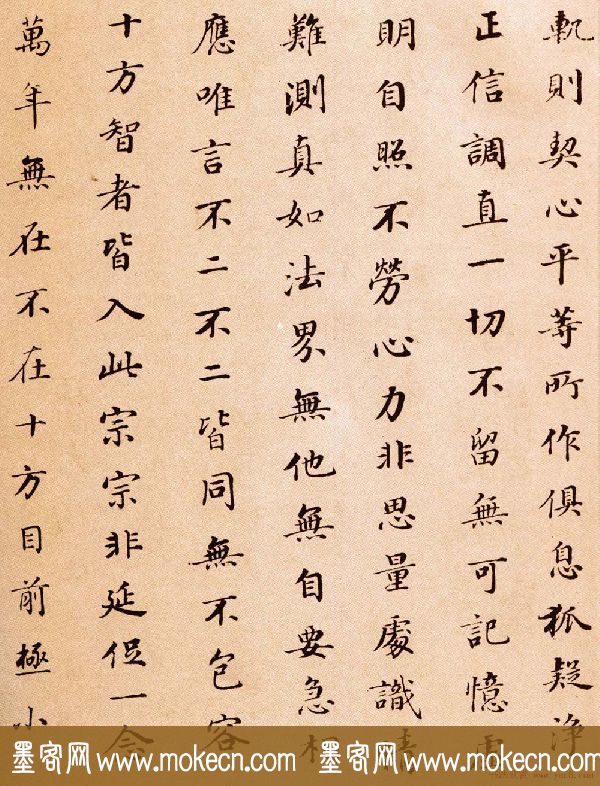 軌則契心平等所作俱息狐疑浄
正信調直一切不留無可記憶虛
明自照不勞心力非思量處識情
難測真如法界無他無自要急相
應唯言不二不二皆同無不包容
十方智者皆入此宗宗非延促一念
萬年無在不在十方目前極小
墨客网 www.mokecn.com 墨客网 www.mokecn.com